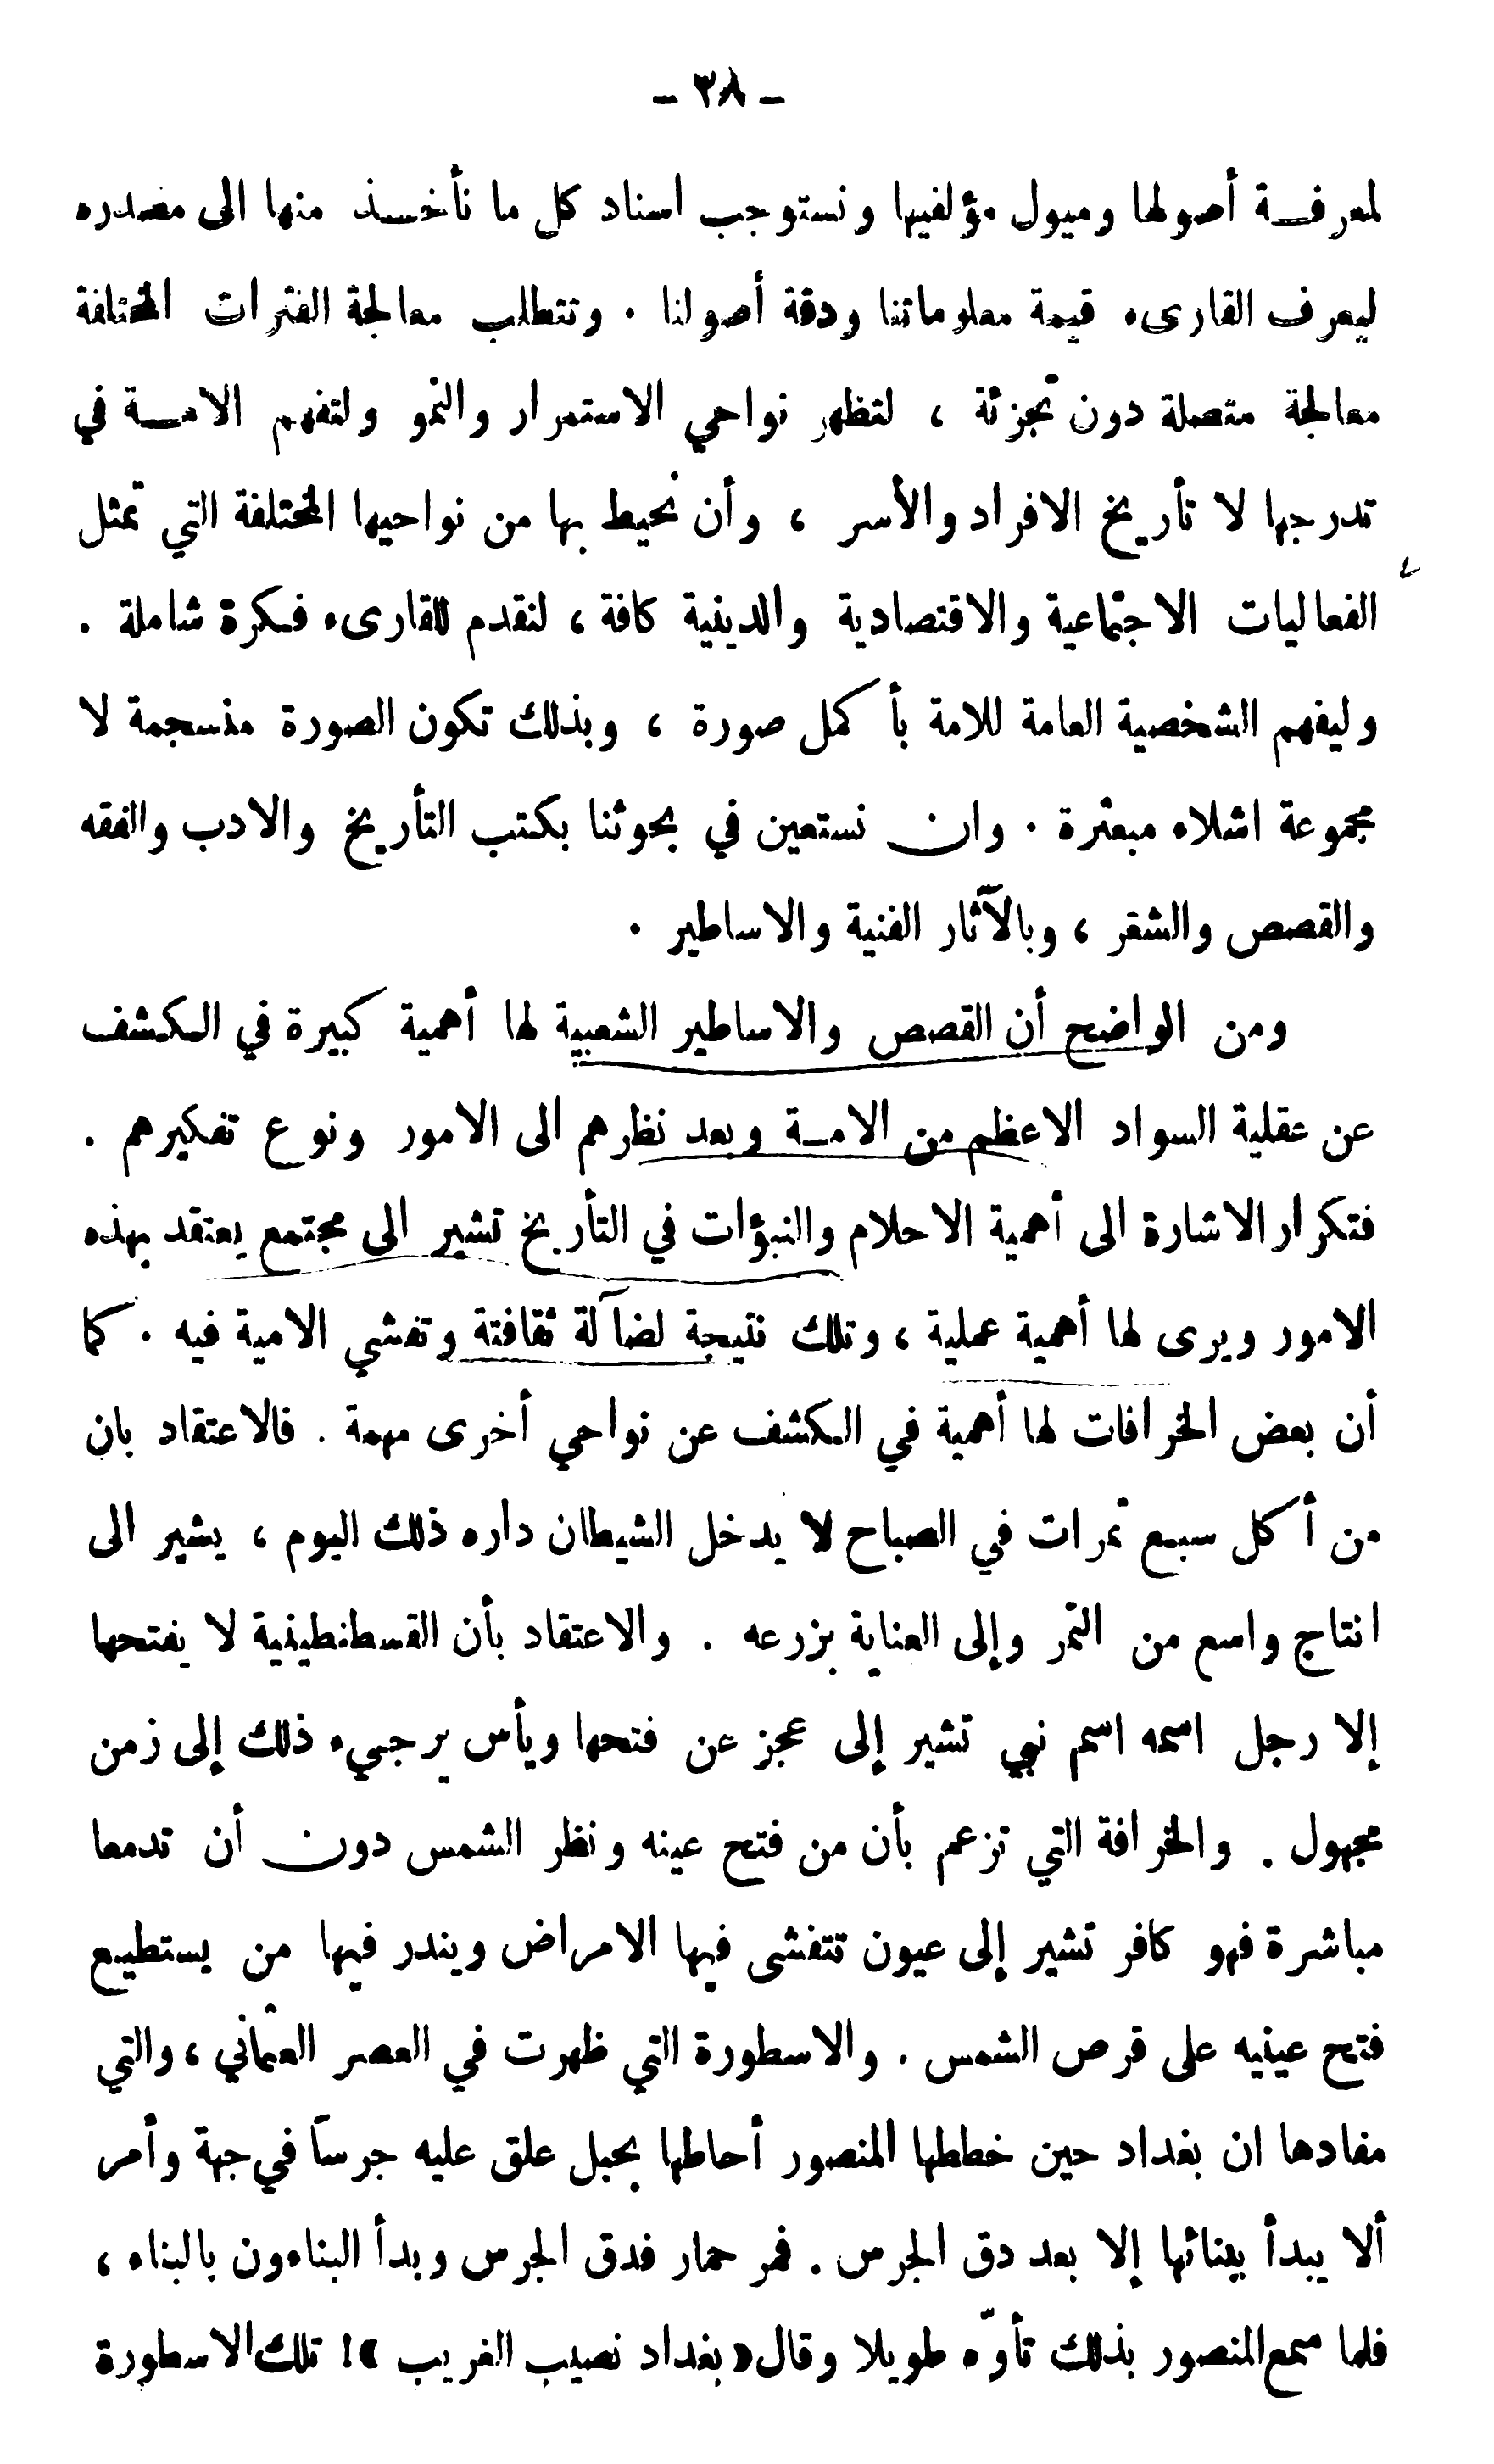 - ٣٨ -
لمعرفة أصولها وميول مؤلفيها ونستوجب اسناد كل ما نأخذ منها الى مصدره
ليعرف القارىء قيمة معلوماتنا ودقة أصولنا . وتتطلب معالجة الفترات المختلفة
معالجة متصلة دون تجزئة ، لتظهر نواحي الاستمرار والنمو ولتفهم الامة في
تدرجها لا تأريخ الافراد والأسر ، وأن نحيط بها من نواحيها المختلفة التي تمثل
الفعاليات الاجتماعية والاقتصادية والدينية كافة ، لنقدم للقارىء فكرة شاملة .
وليفهم الشخصية العامة للامة بأكمل صورة ، وبذلك تكون الصورة منسجمة لا
مجموعة اشلاء مبعثرة . وان نستعين في بحوثنا بكتب التأريخ والادب والفقه
والقصص والشعر ، وبالآثار الفنية والاساطير .
ومن الواضح أن القصص والاساطير الشعبية لها أهمية كبيرة في الكشف
عن عقلية السواد الاعظم من الامة وبعد نظرهم الى الامور ونوع تفكيرهم .
فتكرار الاشارة الى أهمية الاحلام والنبؤات في التأريخ تشير الى مجتمع يعتقد بهذه
الامور ويرى لها أهمية عملية ، وتلك نتيجة لضآلة ثقافتة وتفشي الامية فيه . كما
أن بعض الخرافات لها أهمية في الكشف عن نواحي أخرى مهمة . فالاعتقاد بان
من أكل سبع تمرات في الصباح لا يدخل الشيطان داره ذلك اليوم ، يشير الى
انتاج واسع من التمر وإلى العناية بزرعه . والاعتقاد بأن القسطنطينية لا يفتحها
إلا رجل اسمه اسم نبي تشير إلى عجز عن فتحها ويأس يرجىء ذلك إلى زمن
مجهول . والخرافة التي تزعم بأن من فتح عينه ونظر الشمس دون أن تدمعا
مباشرة فهو كافر تشير إلى عيون تتفشى فيها الامراض ويندر فيها من يستطيع
فتح عينيه على قرص الشمس . والاسطورة التي ظهرت في العصر العثماني ، والتي
مفادها ان بغداد حين خططها المنصور أحاطها بحبل علق عليه جرساً في جهة وأمر
ألا يبدأ ببنائها إلا بعد دق الجرس . فمر حمار فدق الجرس وبدأ البناءون بالبناء ،
فلما سمع المنصور بذلك تأوّه طويلا وقال « بغداد نصيب الغريب » ! تلك الاسطورة